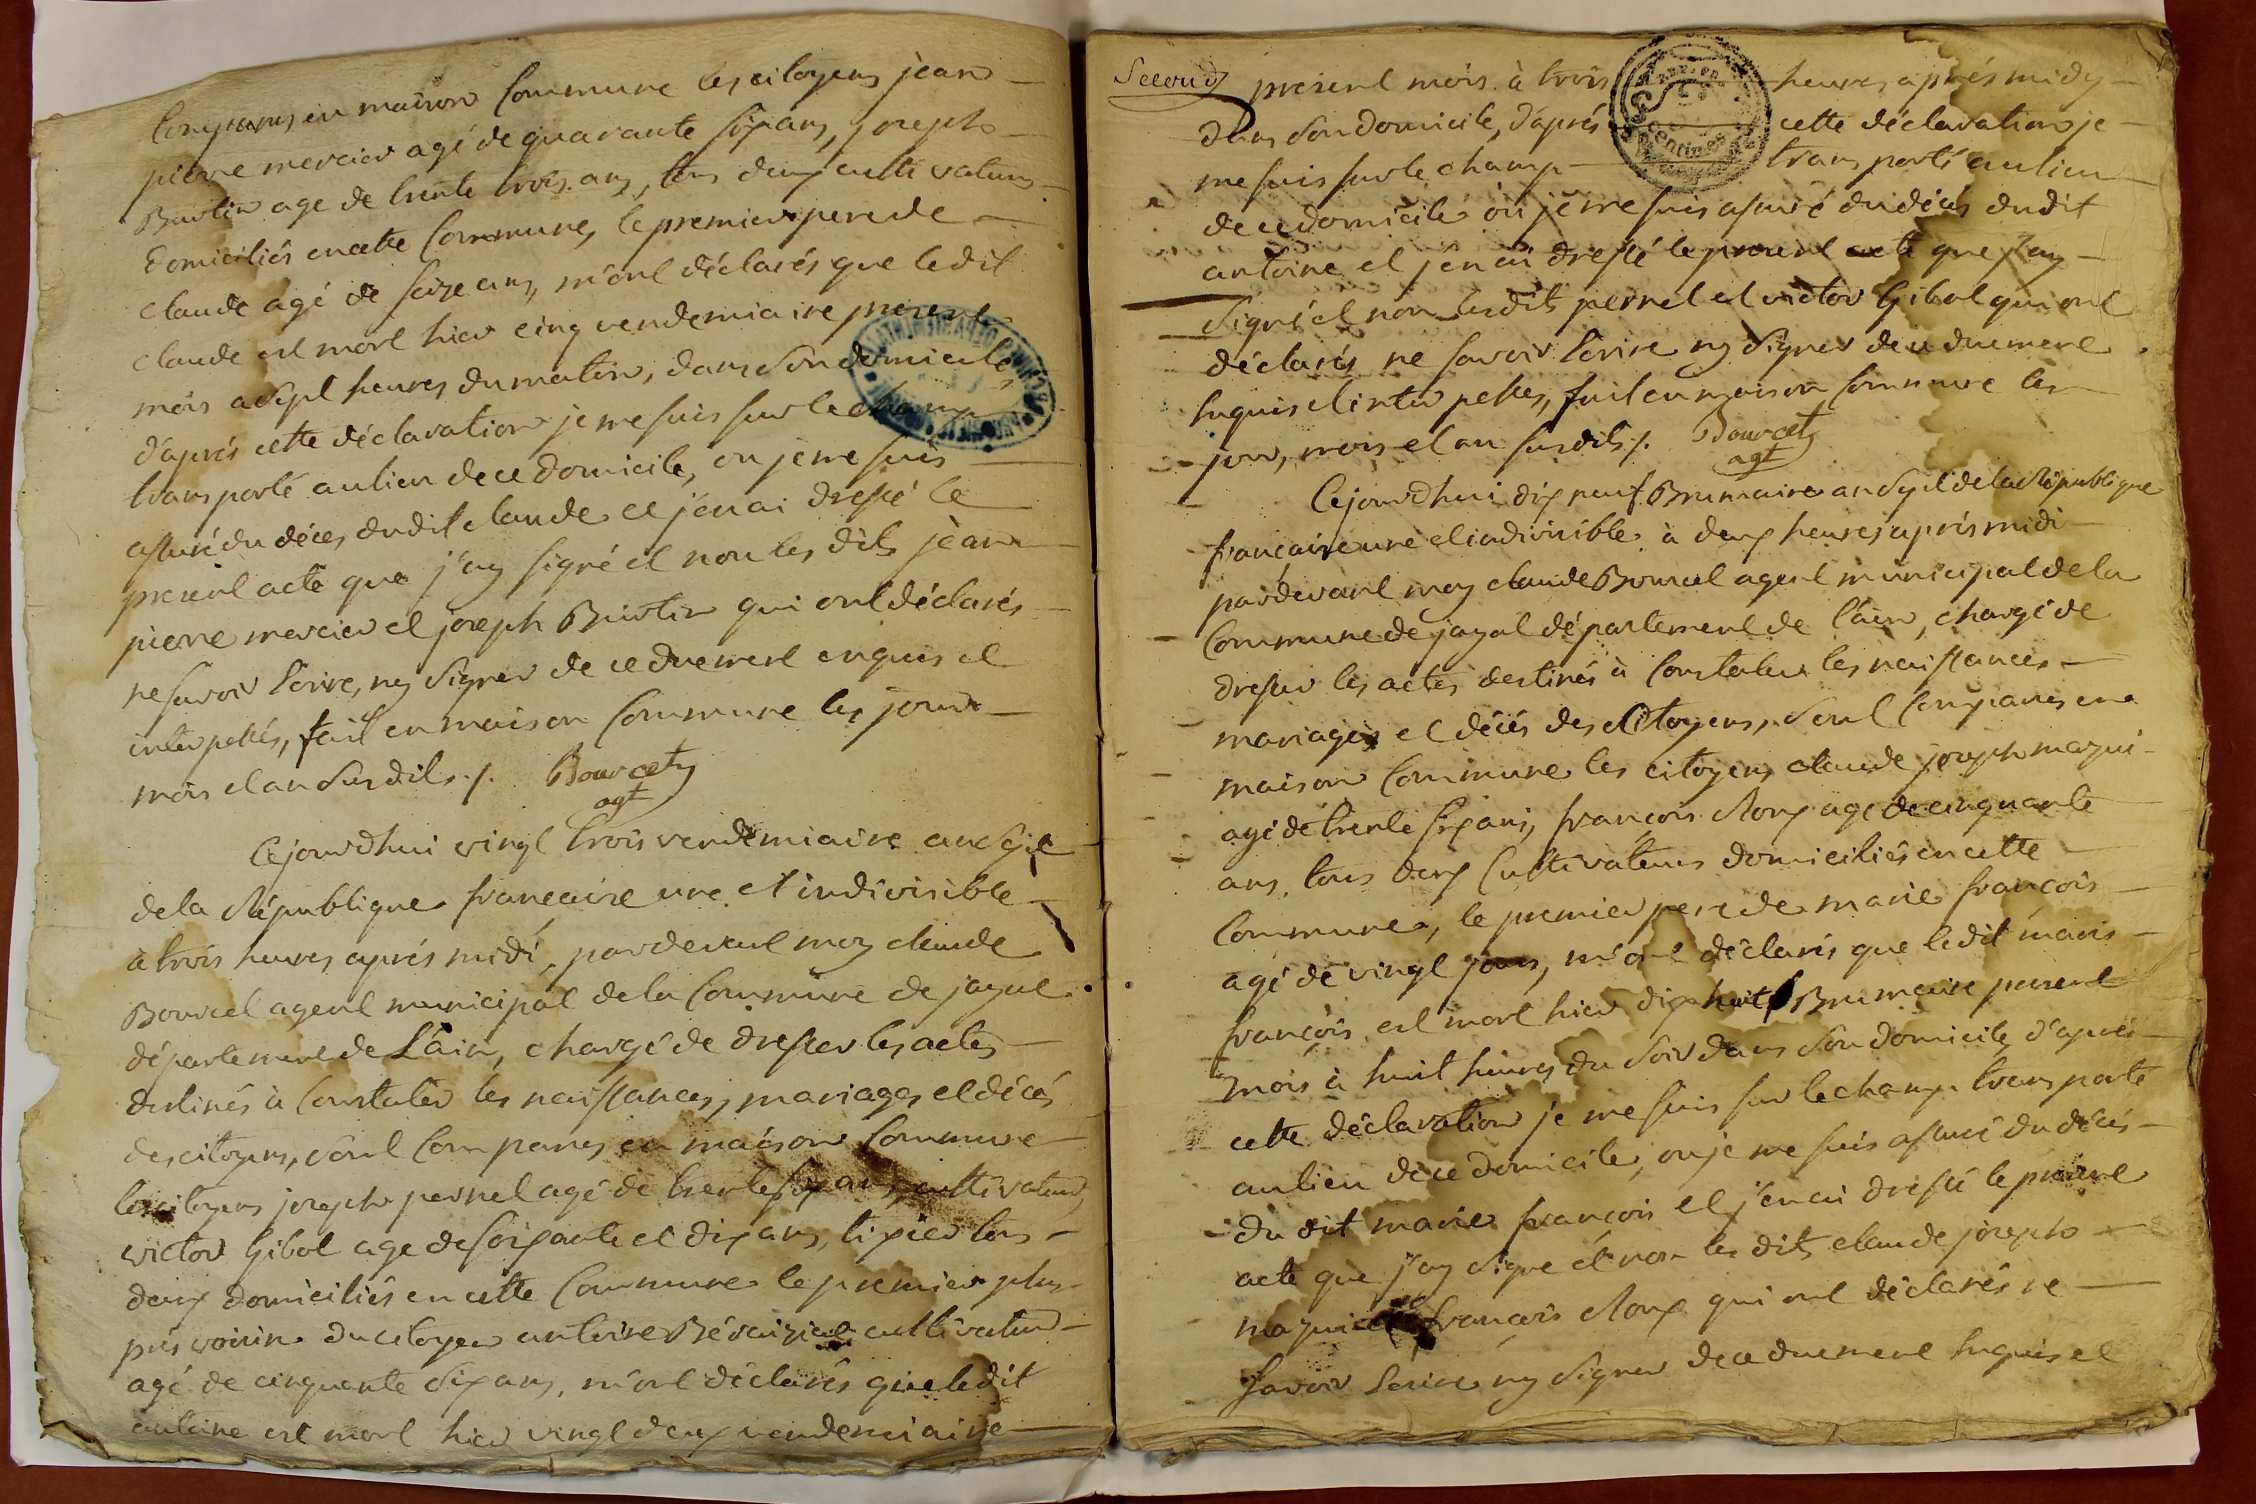 Comparus en maison Commune les citoyens jean
pierre mercier agé de quarante six ans, joseph
Burtin age de trente trois ans, tous deux cultivateurs
domiciliés en cette Commune, le premier pere de
claude agé de seize ans, m'ont déclarés que le dit
claude est mort hier cinq vendemiaire present
mois a sept heures du matin, dans son domicile,
d'aprés cette déclaration je me suis sur le champ
transporté au lieu de ce domicile, ou je me suis
assuré du déces du dit claude et j'en ai dressé le
present acte que j'ay signé et non les dits jean
pierre mercier et joseph Burtin qui ont déclarés
ne savoir Ecrire, ny signer de ce duement enquis et
interpellés, fait en maison Commune les jour
mois et an susdits ./. Bourcet
agt
Cejourdhui vingt trois vendemiaire an sept
de la République francaise une et indivisible
à trois heures aprés midi, pardevant moy claude
Bourcet agent municipal de la Commune de jayat
département de L'ain, chargé de dresser les actes
destinés à Constater les naissances, mariages et décés
des citoyens, sont Comparus en maison Commune
les citoyens joseph pernet agé de trente six ans, cultivateur,
victor Gibot age de soixante et dix ans, tixier tous
deux domiciliés en cette Commune le premier plus
prés voisin du citoyen antoine cultivateur
agé de cinquante six ans, m'ont déclarés que le dit
antoine est mort hier vingt deux vendemiaire
Second
present mois à trois heures aprés midy
dans son domicile, d'aprés cette déclaration je
me suis sur le champ transporté au lieu
de ce domicile où je me suis assuré du décés du dit
antoine et j'en ai dressé le present acte que j'ay
signé et non les dits pernet et victor Gibot qui ont
déclarés ne savoir Ecrire ny signer de ce duement
Enquis et interpellés, fait en maison Commune les
jour, mois et an susdits ./. Bourcet
agt
Cejourdhui dix neuf Brumaire an sept de la République
francaise une et indivisible à deux heures aprés midi
pardevant moy claude Bourcet agent municipal de la
Commune de jayat département de l'ain, chargé de
dresser les actes destinés à Constater les naissances
mariages et décés des Citoyens, sont Comparus en
maison Commune les citoyens claude joseph mazui
agé de trente six ans, francois Roux age de cinquante
ans, tous deux Cultivateurs domiciliés en cette
Commune, le premier pere de marie francois
agé de vingt jours, m'ont déclarés que le dit marie
françois est mort hier dix huit Brumaire present
mois à huit heures du soir dans son domicile, d'aprés
cette déclaration je me suis sur le champ transporté
au lieu de ce domicile, ou je me suis assuré du décés
du dit marie françois et j'en ai dressé le present
acte que j'ay signé et non les dits claude joseph
mazui et francois Roux qui ont déclarés ne
savoir Ecrire ny signer de ce duement Enquis et